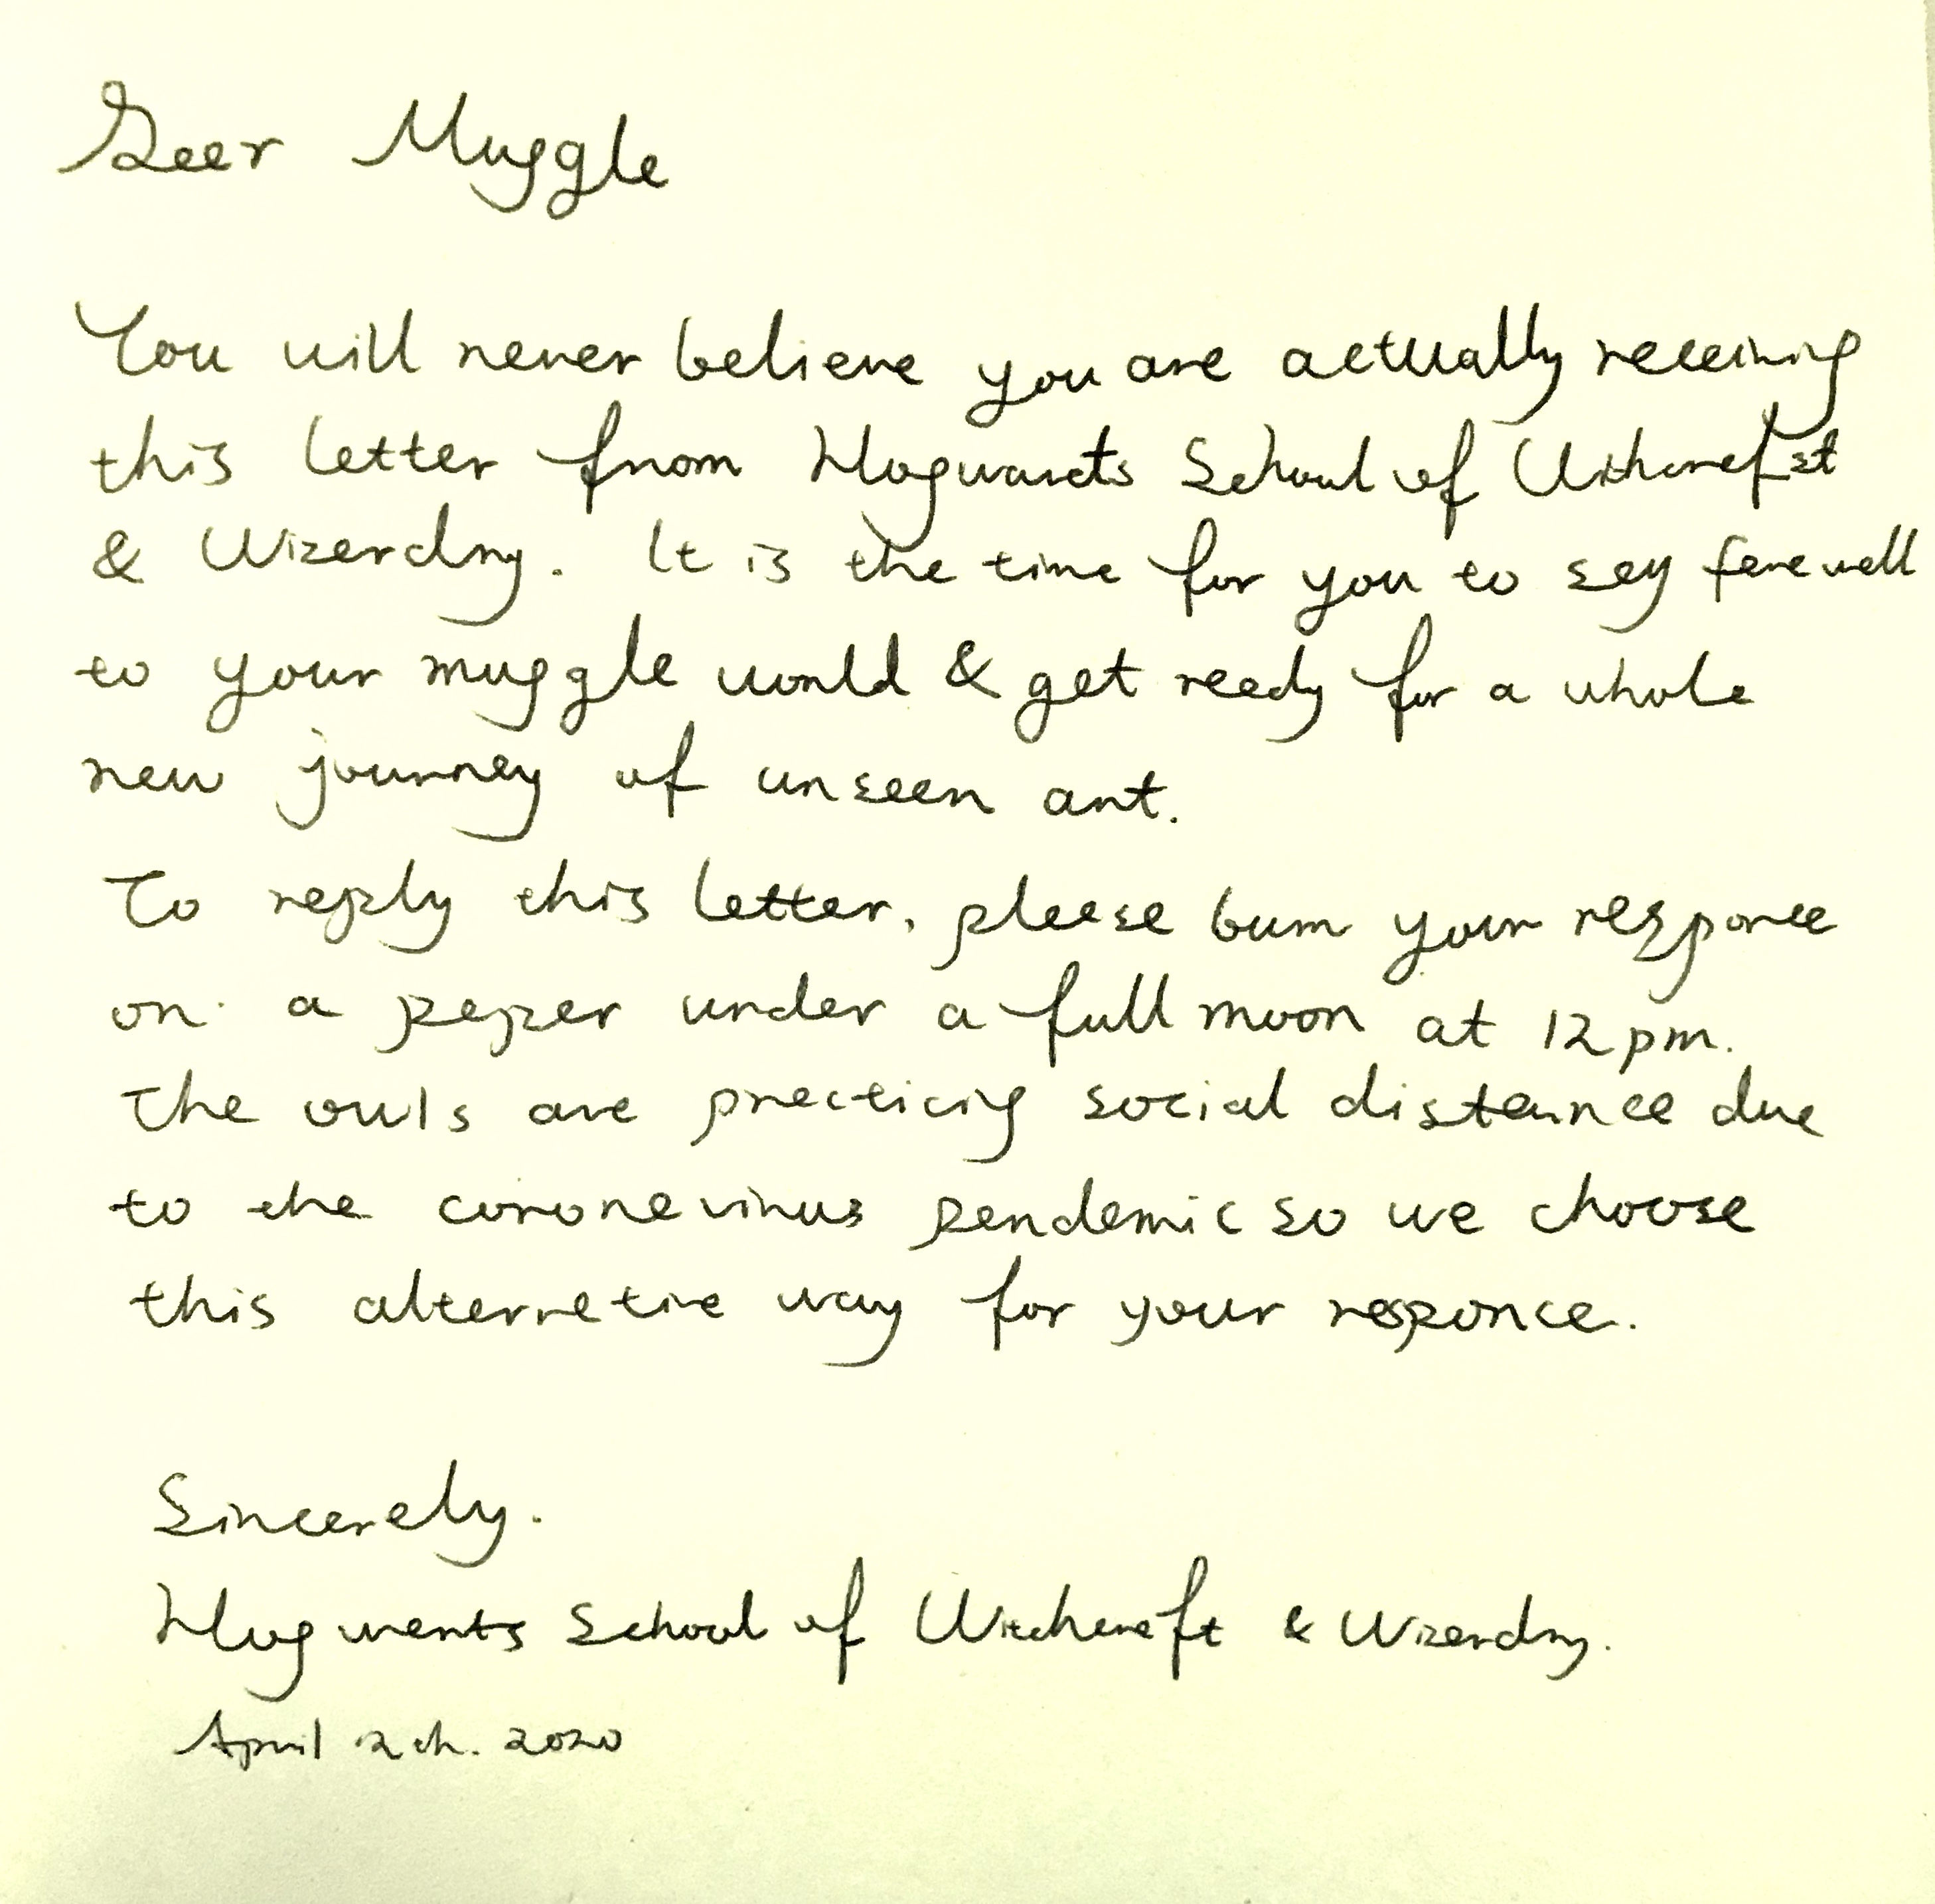 Dear Muggle
You will never believe you are actually receiving
this letter from Hogwarts School of Witchcraft
& Wizardry. It is the time for you to say farewell
to your muggle world & get ready for a whole
new journey of unseen art.
To reply this letter, please burn your responce
on a paper under a full moon at 12pm.
The owls are practicing social distance due
to the coronavirus pandemic so we choose
this alternative way for your responce.
Sincerely.
Hogwarts School of Witchcraft & Wizardry.
April 2th. 2020